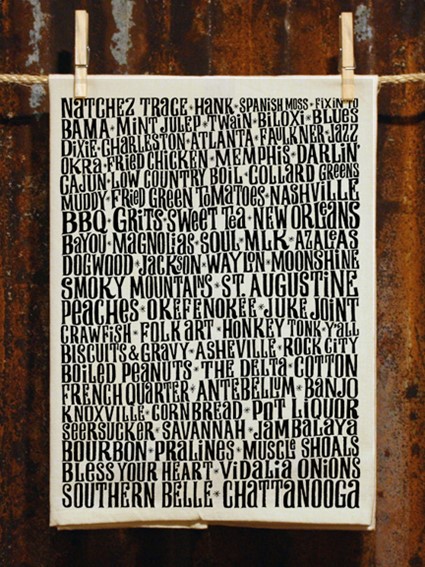 NATCHEZ TRACE * HANK * SPANISH MOSS * FIXIN TO
BAMA * MINT JULEP * TWAIN * BILOXI * BLUES
DIXIE * CHARLESTON * ATLANTA * FAULKNER * JAZZ
OKRA * FRIED CHICKEN * MEMPHIS * DARLIN'
CAJUN * LOW COUNTRY BOIL * COLLARD GREENS
MUDDY * FRIED GREEN TOMATOES * NASHVILLE
BBQ * GRITS * SWEET TEA * NEW ORLEANS
BAYOU * MAGNOLIAS * SOUL * MLK * AZALEAS
DOGWOOD * JACKSON * WAYLON * MOONSHINE
SMOKY MOUNTAINS * ST. AUGUSTINE
PEACHES * OKEFENOKEE * JUKE JOINT
CRAWFISH * FOLK ART * HONKEY TONK * Y'ALL
BISCUITS & GRAVY * ASHEVILLE * ROCK CITY
BOILED PEANUTS * THE DELTA * COTTON
FRENCH QUARTER * ANTEBELLUM * BANJO
KNOXVILLE * CORNBREAD * POT LIQUOR
SEERSUCKER * SAVANNAH * JAMBALAYA
BOURBON * PRALINES * MUSCLE SHOALS
BLESS YOUR HEART * VIDALIA ONIONS
SOUTHERN BELLE * CHATTANOOGA